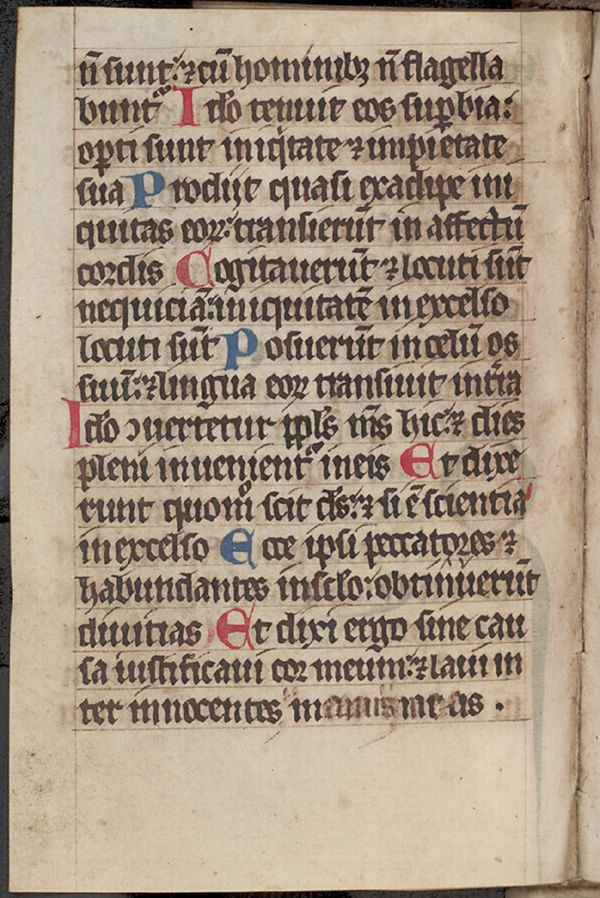 n̄ sunt: ⁊ cū hominibꝫ n̄ flagella
bunt᷑ Ido tenuit eos suꝑbia:
oꝑti sunt iniqͥtate ⁊ impietate
sua Prodijt quasi exadipe ini
quitas eoꝝ: transierūt in affectū
cordis Cogitauerūt ⁊ locuti sūt
nequiciā: iniquitatē in excelso
locuti sūt Posuerūt in celū os
suū: ⁊ lingua eoꝝ transiuit in tr̄a
Ido ꝯuertetur ppl̄s mS hic: ⁊ dies
pleni inuenient᷑ in eis Et dixe
runt quomͦ scit ds̄: ⁊ si ē scientia
in excelso Ecce ipsi peccatores ⁊
habundantes in sclo: obtinuerūt
diuitias Et dixi ergo sine cau
sa iustificaui cor meum: ⁊ laui in
ter innocentes manus meas .